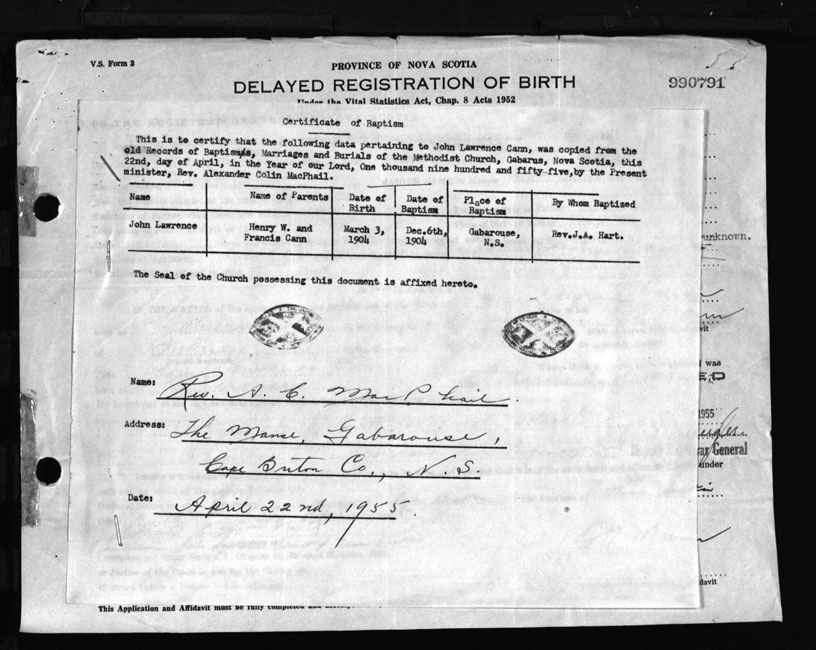 V.S. Form 3
PROVINCE OF NOVA SCOTIA
DELAYED REGISTRATION OF BIRTH
990791
Under the Vital Statistics Act, Chap. 8 Acts 1952
Certificate of Baptism
This is to certify that the following data pertaining to John Lawrence Cann, was copied from the
old Records of Baptisms, Marriages and Burials of the Methodist Church, Gabarus, Nova Scotia, this
22nd, day of April, in the Year of our Lord, One thousand nine hundred and fifty-five, by the Present
minister, Rev. Alexander Colin MacPhail.
Name Name of Parents Date of Birth Date of Baptism Place of Baptism By Whom Baptized
John Lawrence Henry W. and Francis Cann March 3, 1904 Dec.6th, 1904 Gabarouse, N.S. Rev.J.A. Hart.
unknown.
The Seal of the Church possessing this document is affixed hereto.
was
Name: Rev. A. C. MacPhail.
1955
Address: The Manse, Gabarouse,
General
Cape Briton Co., N. S.
under
Date: April 22nd, 1955.
davit
This Application and Affidavit must be fully completed and